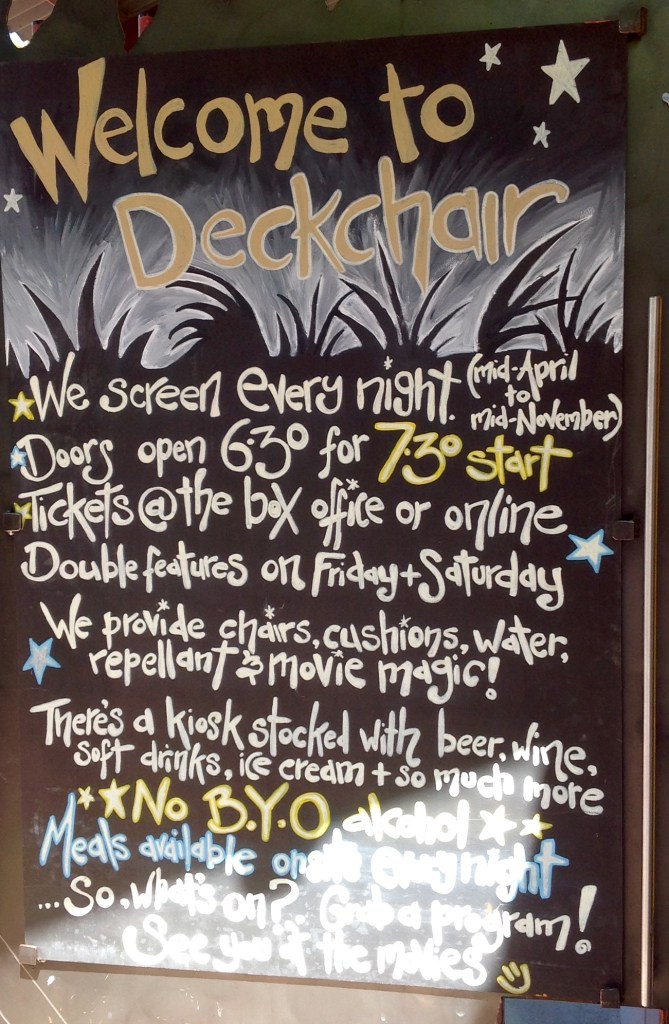 Welcome to
Deckchair
We screen every night. (mid-April to mid-November)
Doors open 6.30 for 7.30 start
Tickets @ the box office or online
Double features on Friday + Saturday
We provide chairs, cushions, water,
repellant & movie magic!
There's a kiosk stocked with beer, wine,
soft drinks, ice cream + so much more
No B.Y.O alcohol
Meals available onsite every night
...So, what's on? Grab a program!
See you at the movies